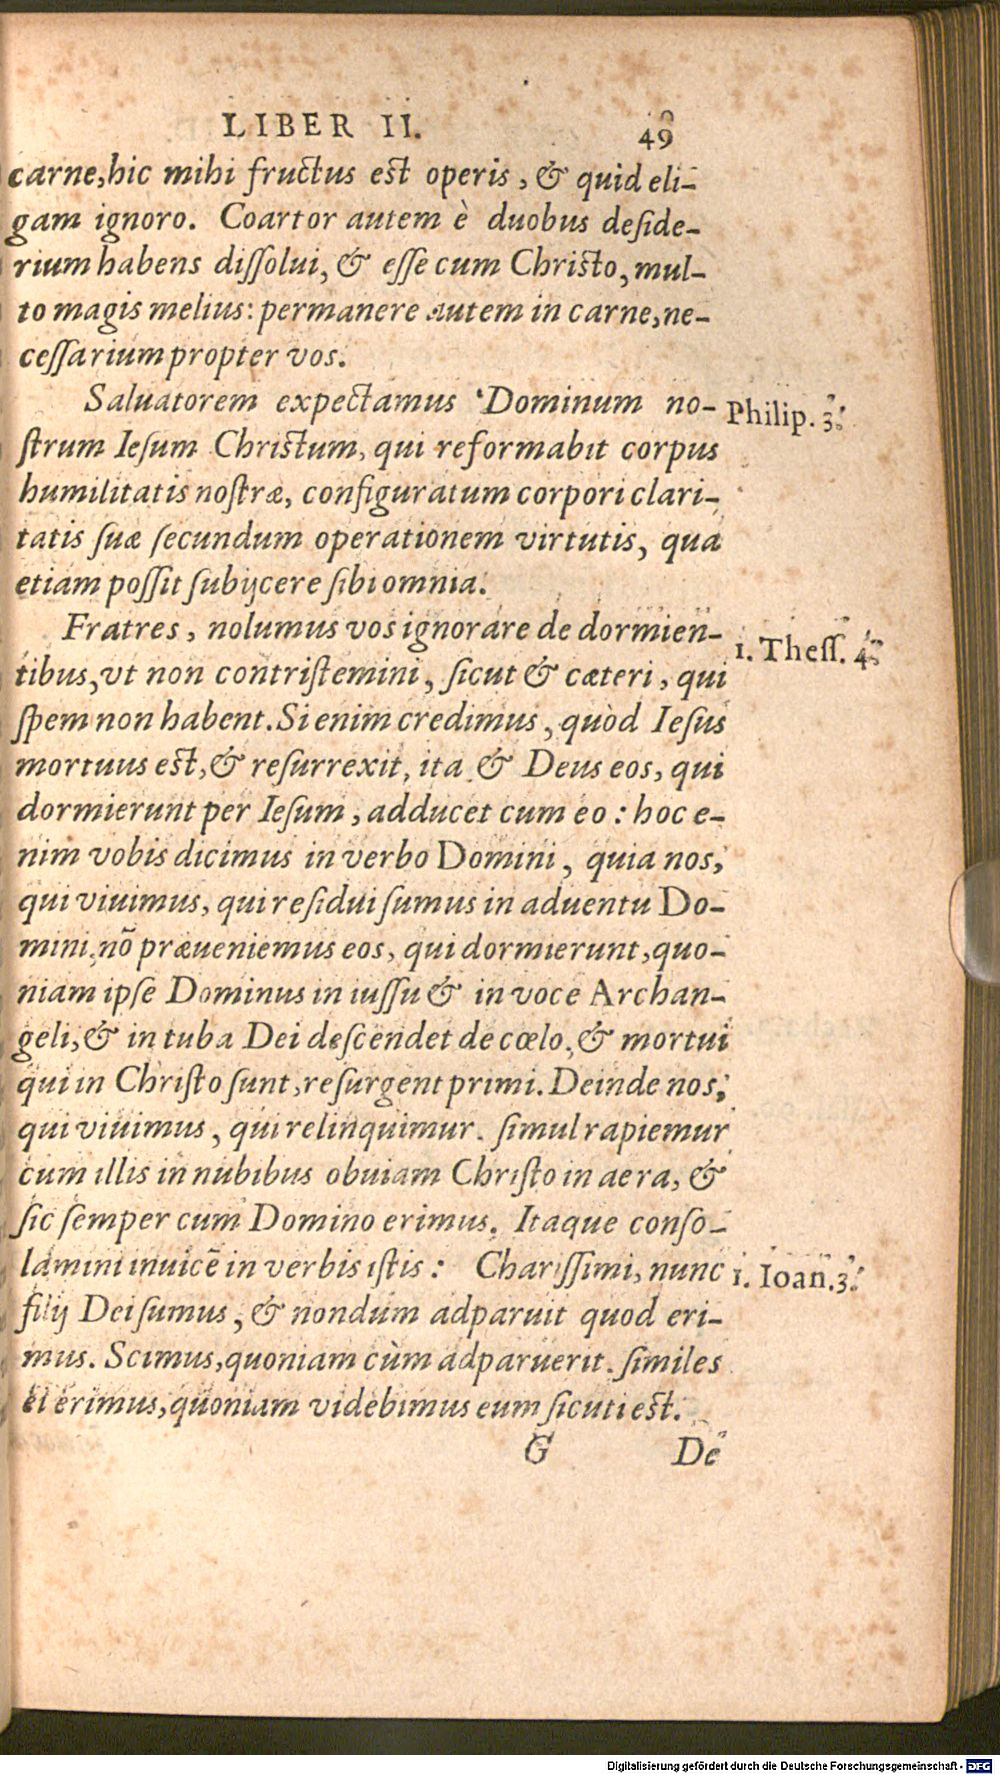 LIBER II. 49
carne, hic mihi fructus est operis, & quid eli-
gam ignoro. Coartor autem è duobus deside-
rium habens dissolui, & esse cum Christo, mul-
to magis melius: permanere autem in carne, ne-
cessarium propter vos.
Saluatorem expectamus Dominum no- Philip. 3.
strum Iesum Christum, qui reformabit corpus
humilitatis nostræ, configuratum corpori clari-
tatis suæ secundum operationem virtutis, qua
etiam possit subijcere sibi omnia.
Fratres, nolumus vos ignorare de dormien- 1. Thess. 4.
tibus, vt non contristemini, sicut & cæteri, qui
spem non habent. Si enim credimus, quòd Iesus
mortuus est, & resurrexit, ita & Deus eos, qui
dormierunt per Iesum, adducet cum eo: hoc e-
nim vobis dicimus in verbo Domini, quia nos,
qui viuimus, qui residui sumus in aduentu Do-
mini, nō præueniemus eos, qui dormierunt, quo-
niam ipse Dominus in iussu & in voce Archan-
geli, & in tuba Dei descendet de cœlo, & mortui
qui in Christo sunt, resurgent primi. Deinde nos,
qui viuimus, qui relinquimur. simul rapiemur
cum illis in nubibus obuiam Christo in aera, &
sic semper cum Domino erimus. Itaque conso-
lamini inuicē in verbis istis: Charissimi, nunc 1. Ioan. 3.
filij Dei sumus, & nondum adparuit quod eri-
mus. Scimus, quoniam cùm adparuerit. similes
ei erimus, quoniam videbimus eum sicuti est.
G De
Digitalisierung gefördert durch die Deutsche Forschungsgemeinschaft - DFG